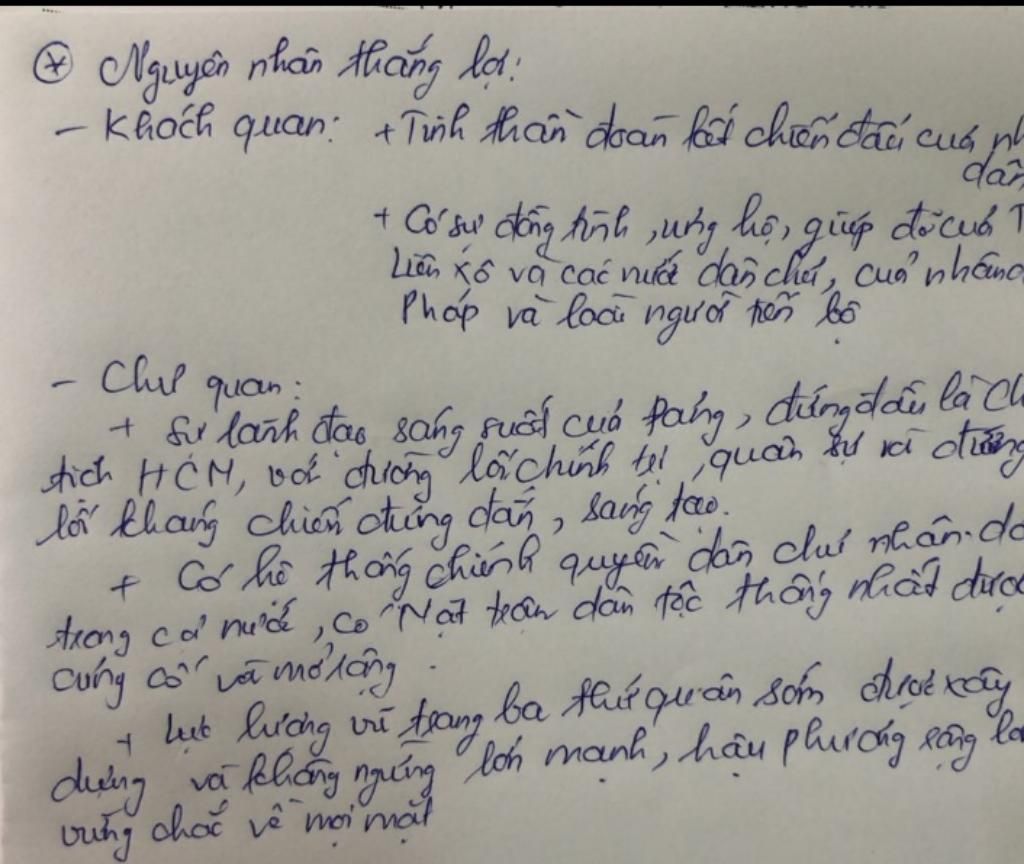 * Nguyên nhân thắng lợi:
- Khách quan: + Tinh thần đoàn kết chiến đấu của nh
dân
+ Có sự đồng tình, ủng hộ, giúp đỡ của T
Liên Xô và các nước dân chủ, của nhân d
Pháp và loài người tiến bộ
- Chủ quan:
+ Sự lãnh đạo sáng suốt của Đảng, đứng đầu là Ch
tịch HCM, với đường lối chính trị, quân sự và đường
lối kháng chiến đúng đắn, sáng tạo.
+ Có hệ thống chính quyền dân chủ nhân do
trong cả nước, có Mặt trận dân tộc thống nhất được
củng cố và mở rộng.
+ Lực lượng vũ trang ba thứ quân sớm được xây
dựng và không ngừng lớn mạnh, hậu phương rộng lớ
vững chắc về mọi mặt